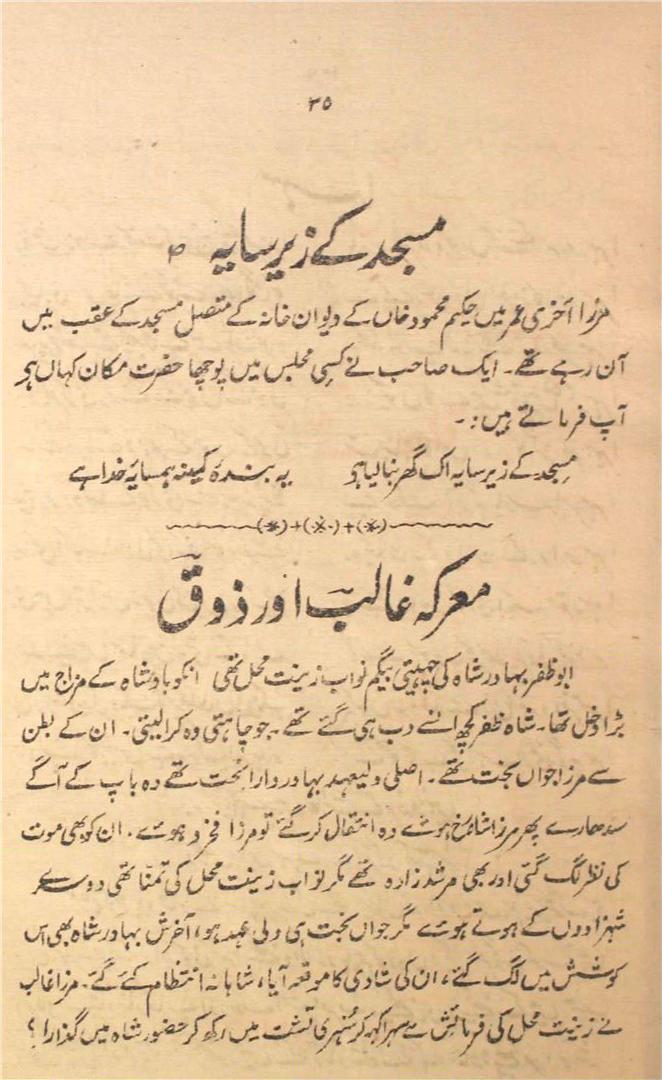 ۳۵
مسجد کے زیر سایہ
مرزا آخری عمر میں حکیم محمود خاں کے دیوان خانہ کے متصل مسجد کے عقب میں
آن رہے تھے۔ ایک صاحب نے کسی مجلس میں پوچھا حضرت مکان کہاں ہو
آپ فرماتے ہیں:۔
مسجد کے زیر سایہ اک گھر بنا لیا ہو یہ بندۂ کمینہ ہمسایۂ خدا ہے
معرکہ غالب اور ذوق
ابو ظفر بہادر شاہ کی چہیتی بیگم نواب زینت محل تھی انکو بادشاہ کے مزاج میں
بڑا دخل تھا۔ شاہ ظفر کچھ انسے دب ہی گئے تھے۔ جو چاہتی وہ کرالیتی۔ ان کے بطن
سے مرزا جواں بخت تھے۔ اصلی ولیعہد بہادر دارا بخت تھے وہ باپ کے آگے
سدھارے پھر مرزا شاہرخ ہوئے وہ انتقال کر گئے تو مرزا فخرو ہوئے۔ ان کو بھی موت
کی نظر لگ گئی اور بھی مرشد زادہ تھے مگر نواب زینت محل کی تمنا تھی دوسرے
شہزادوں کے ہوتے ہوئے مگر جواں بخت ہی ولی عہد ہو، آخرش بہادر شاہ بھی اس
کوشش میں لگ گئے، ان کی شادی کا موقعہ آیا، شاہانہ انتظام کئے گئے۔ مرزا غالب
نے زینت محل کی فرمائش سے سہرا کہہ کر سنہری تشت میں رکھ کر حضور شاہ میں گذارا؟